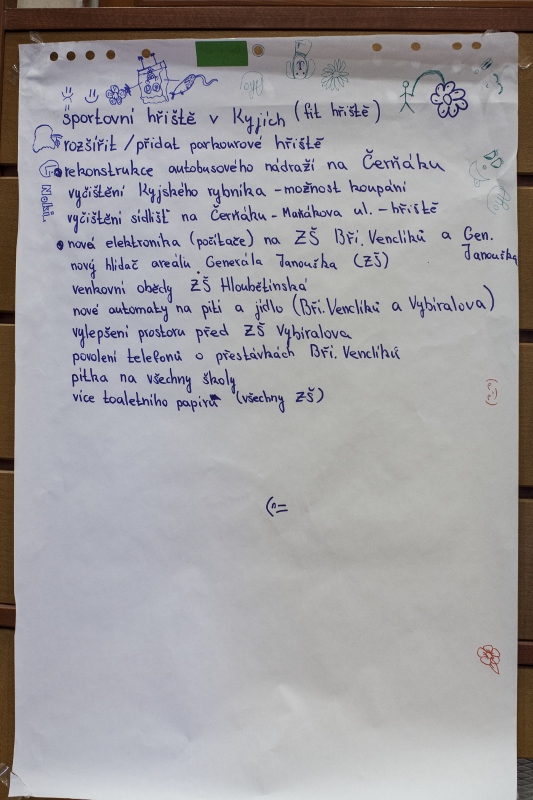 sportovní hřiště v Kyjích (fit hřiště)
rozšířit / přidat parkourové hřiště
rekonstrukce autobusového nádraží na Čerňáku
vyčištění Kyjského rybníka - možnost koupání
vyčištění sídlišť na Čerňáku - Maňákova ul. - hřiště
nová elektronika (počítače) na ZŠ Bří. Venclíků a Gen. Janouška
nový hlídač areálu Generála Janouška (ZŠ)
venkovní obědy ZŠ Hloubětínská
nové automaty na pití a jídlo (Bří. Venclíků a Vybíralova)
vylepšení prostoru před ZŠ Vybíralova
povolení telefonů o přestávkách Bří. Venclíků
pítka na všechny školy
více toaletního papíru (všechny ZŠ)